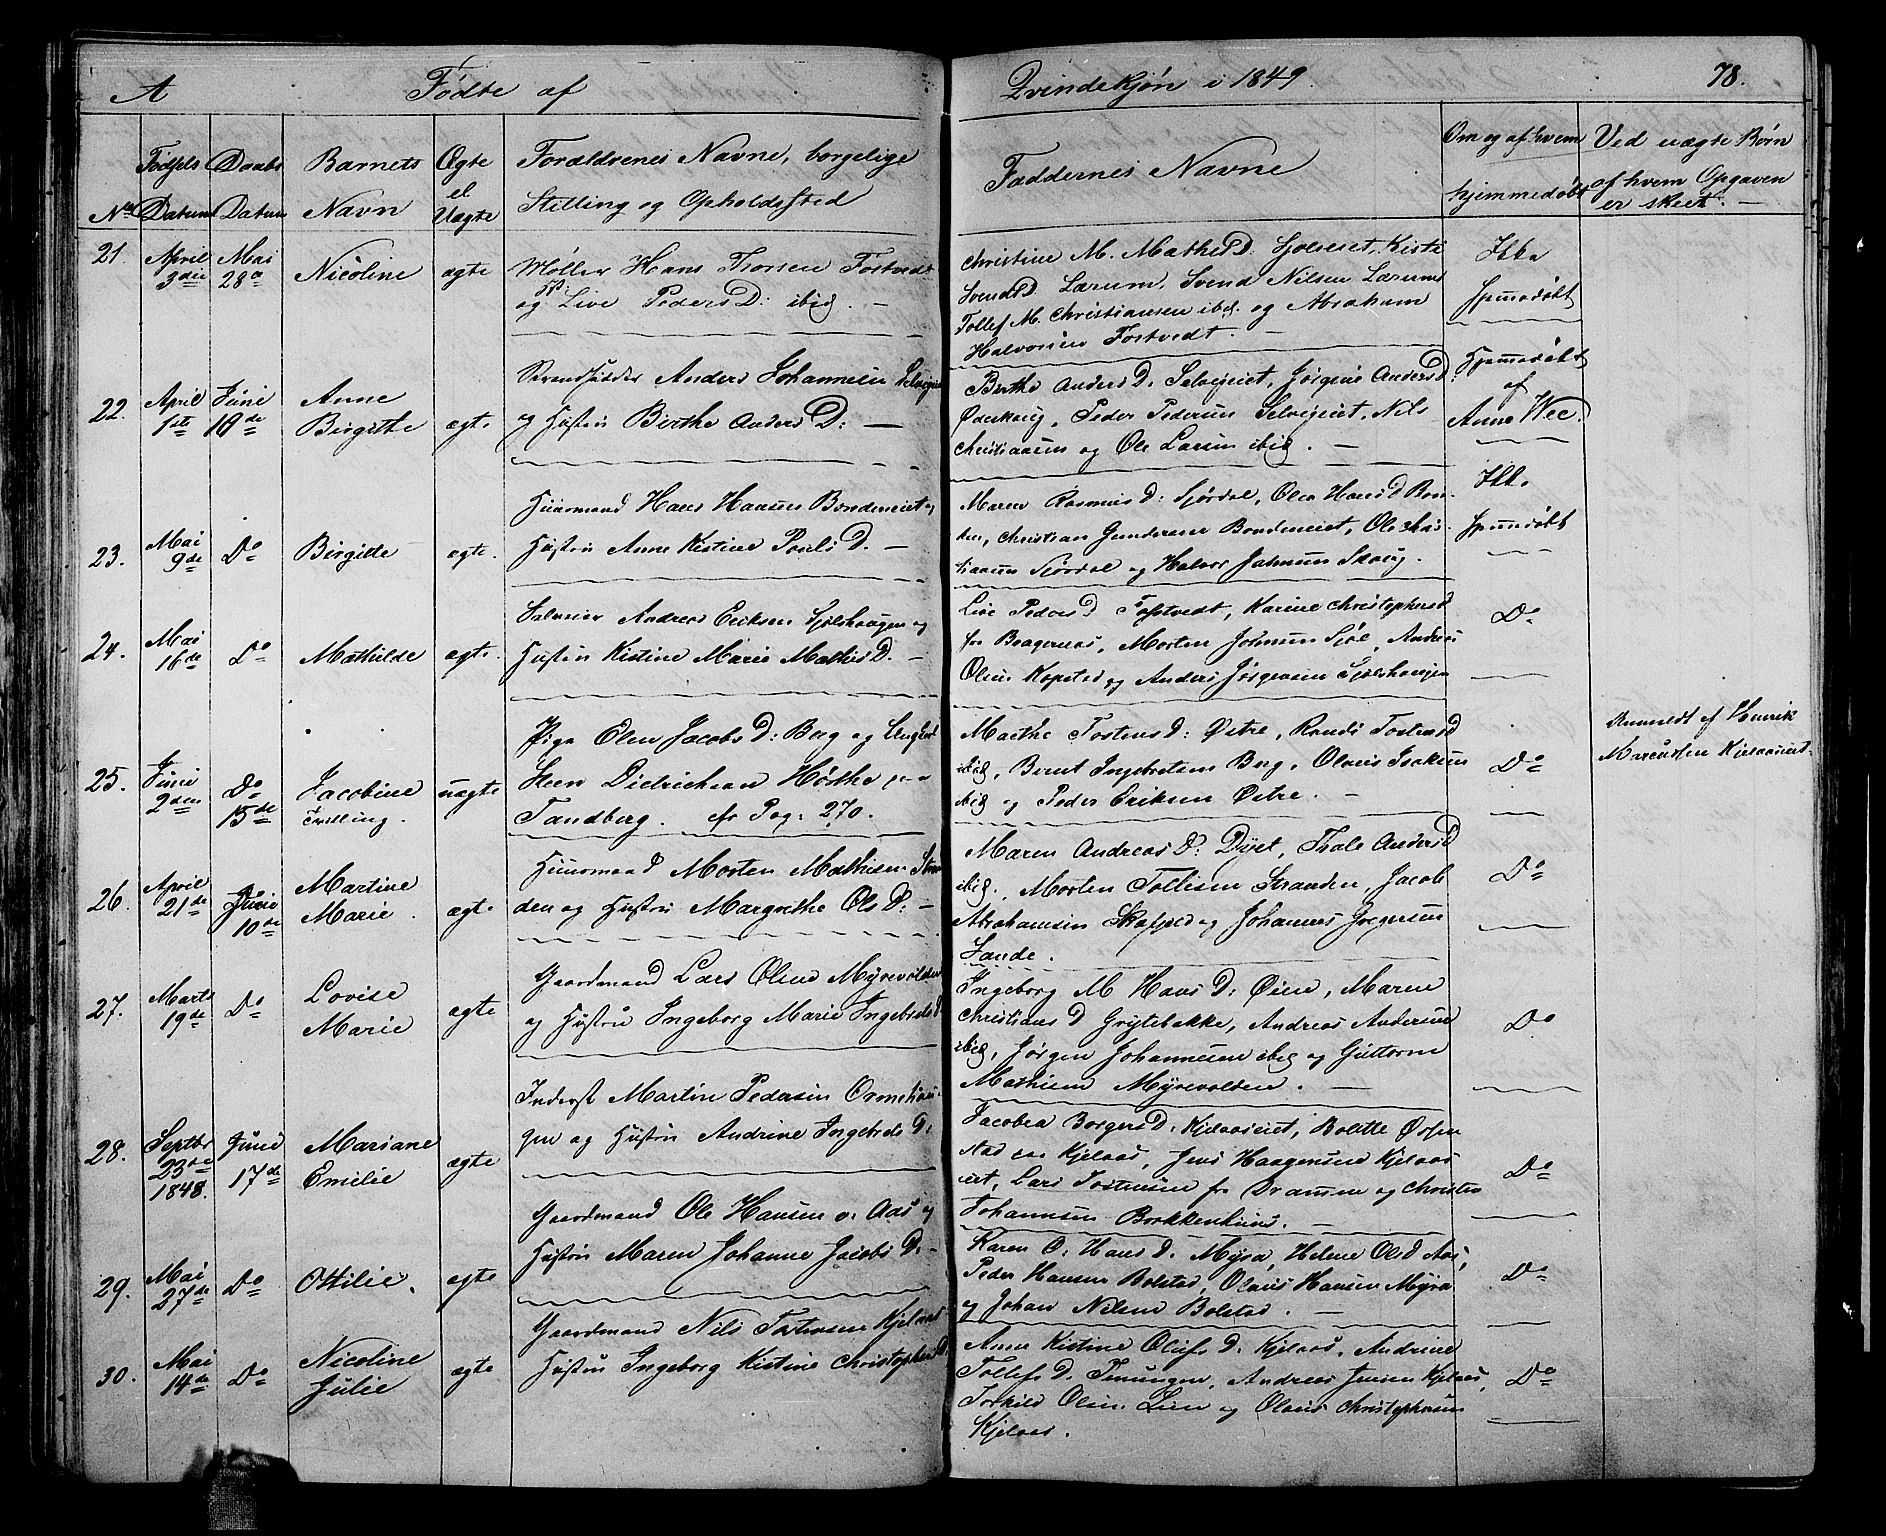 A Fødte af Qvindekjøn i 1849. 78.
No
Fødsels Datum
Daabs Datum
Barnets Navn
Ægte el Uægte
Forældrenes Navne, borgelige
Stilling og Opholdssted
Faddernes Navne
Om og af hvem
hjemmedøbt
Ved uægte Børn
af hvem Opgaven
er skeet. —
21. April 3die Mai 28de Nicoline ægte
Møller Hans Thorsen Tostvedt
og Live Peders D: ibid. —
Christine M. Mathis D. Kisti
Svends D Lærum, Svend Nilsen Lærum
Tollef M. Christiansen ibd. og Abraham
Halvorsen Tostvedt. —
Ikke
hjemmedøbt
22. April 1ste Juni 10de Anne Birgitte ægte
Strandsidder Anders Johannesen
og Hustru Birthe Anders D: —
Birthe Anders D: Selvigeiet, Jørgine Anders D
Peder Pedersen Selvigeiet, Nils
Christiansen og Ole Larsen ibid. —
Hjemmedøbt
af
Anne Wee.
23. Mai 9de Do Birgitte ægte.
Huusmand Hans Hansen Bondeneiet og
Hustru Anne Kistine Pouls D. —
Maren Rasmus D: Fjørdal, Olea Hans D Bon-
den, Christian Gundersen Bondeneiet, Ole
Fjørdal og Halvor Johnsen Skoug.
Ikke
hjemmedøbt
24. Mai 16de Do Mathilde ægte.
Selveier Andreas Eriksen Sjølshougen og
Hustru Kistine Marie Mathis D. —
Live Peders D Tostvedt, Karine Christophers D
fra Bragernæs, Morten Johnsen Sjøl, Andreas
Olsen Kopstad og Anders Jørgensen Sjølshougen
Do
25. Juni 2den Do 15de Jacobine Tvilling. uægte
Pige Olea Jacobs D: Berg og Ungkarl
Steen Dietrichsen Høsthe paa
Tandberg. cfr Pag: 270.
Marthe Tostens D: Østre, Randi Tostens D
ibid, Bernt Ingebretsen Berg, Olaus Isaksen
ibid og Peder Eriksen Østre. —
Do
Anmeldt af Henrik
Marcusen Kjelaaseiet.
26. April 21de Juni 10de Martine Marie. ægte
Huusmand Morten Mathisen Stran-
den og Hustru Margrethe Ols D: —
Maren Andreas D: Dyet, Thale Anders D
ibid, Morten Tollefsen Stranden, Jacob
Abrahamsen Skafjeld og Johannes Gregersen
Sande.
Do
27. Marts 19de Do Lovise Marie ægte
Gaardmand Lars Olsen Myrevolden
og Hustru Ingeborg Marie Ingebrets D
Ingeborg M Hans D: Øien, Maren
Christians D Grytebakke, Andreas Andersen
ibid, Jørgen Johannesen ibid og Guttorm
Mathisen Myrevolden. —
Do
28. Septbr 23de 1848. Juni 17de Mariane Emilie ægte
Inderst Martin Pedersen Ormehau-
gen og Hustru Andrine Ingebrets D:
Jacobea Borgers D: Kjelaaseiet, Bolette Ørsen
stad paa Kjelaas, Jens Haagensen Kjelaas
eiet, Lars Tostensen fra Drammen og Christen
Johannsen Borkkenhuus. —
Do
29. Mai 27de Do Ottilie. ægte
Gaardmand Ole Hansen v: Aas og
Hustru Maren Johanne Jacobs D: —
Karen O: Hans D: Myra, Helene Ols D Aas,
Peder Hansen Bolstad, Olaus Hansen Myra
og Johan Nilsen Bolstad. —
Do
30. Mai 14de Do Nicoline Julie ægte
Gaardmand Nils Tostensen Kjelaas
Hustru Ingeborg Kistine Christophers D
Anne Kistine Olufs D: Kjelaas, Andrine
Tollefs D. Andreas Jensen Kjelaas,
Torkild Olsen Lien og Olaus Christophersen
Kjelaas.
Do